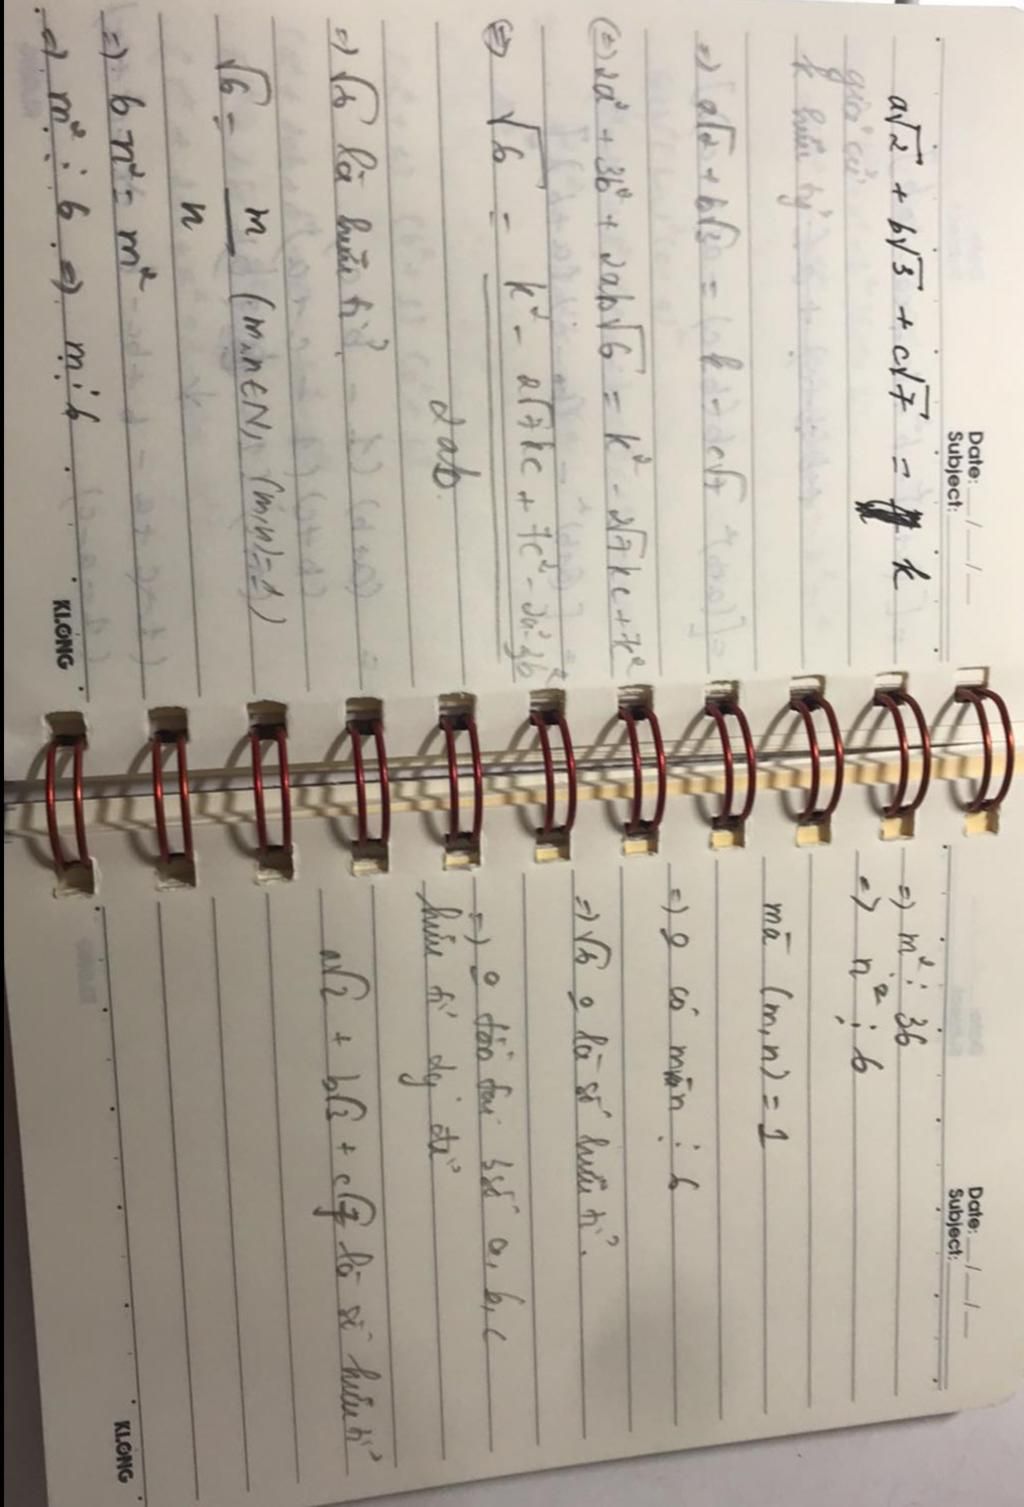 Date: __/__/__
Subject:
a√2 + b√3 + c√7 = k
giả sử
k hữu tỷ
=) a√2 + b√3 = k - c√7
(=) 2a² + 3b² + 2ab√6 = k² - 2√7kc + 7c²
(=) √6 = k² - 2√7kc + 7c² - 2a² - 3b²
2ab
=) √6 là hữu tỉ
√6 = m (m,n ∈ N, (m,n)=1)
n
=) 6n² = m²
=) m² ⋮ 6 =) m ⋮ 6
KLONG
Date: __/__/__
Subject:
=) m² ⋮ 36
=) n² ⋮ 6
mà (m,n) = 1
=) 0 có m, n ⋮ 6
=) √6 0 là số hữu tỉ.
=) 0 tồn tại 3 số a, b, c
hữu tỉ để
a√2 + b√3 + c√7 là số hữu tỉ
KLONG